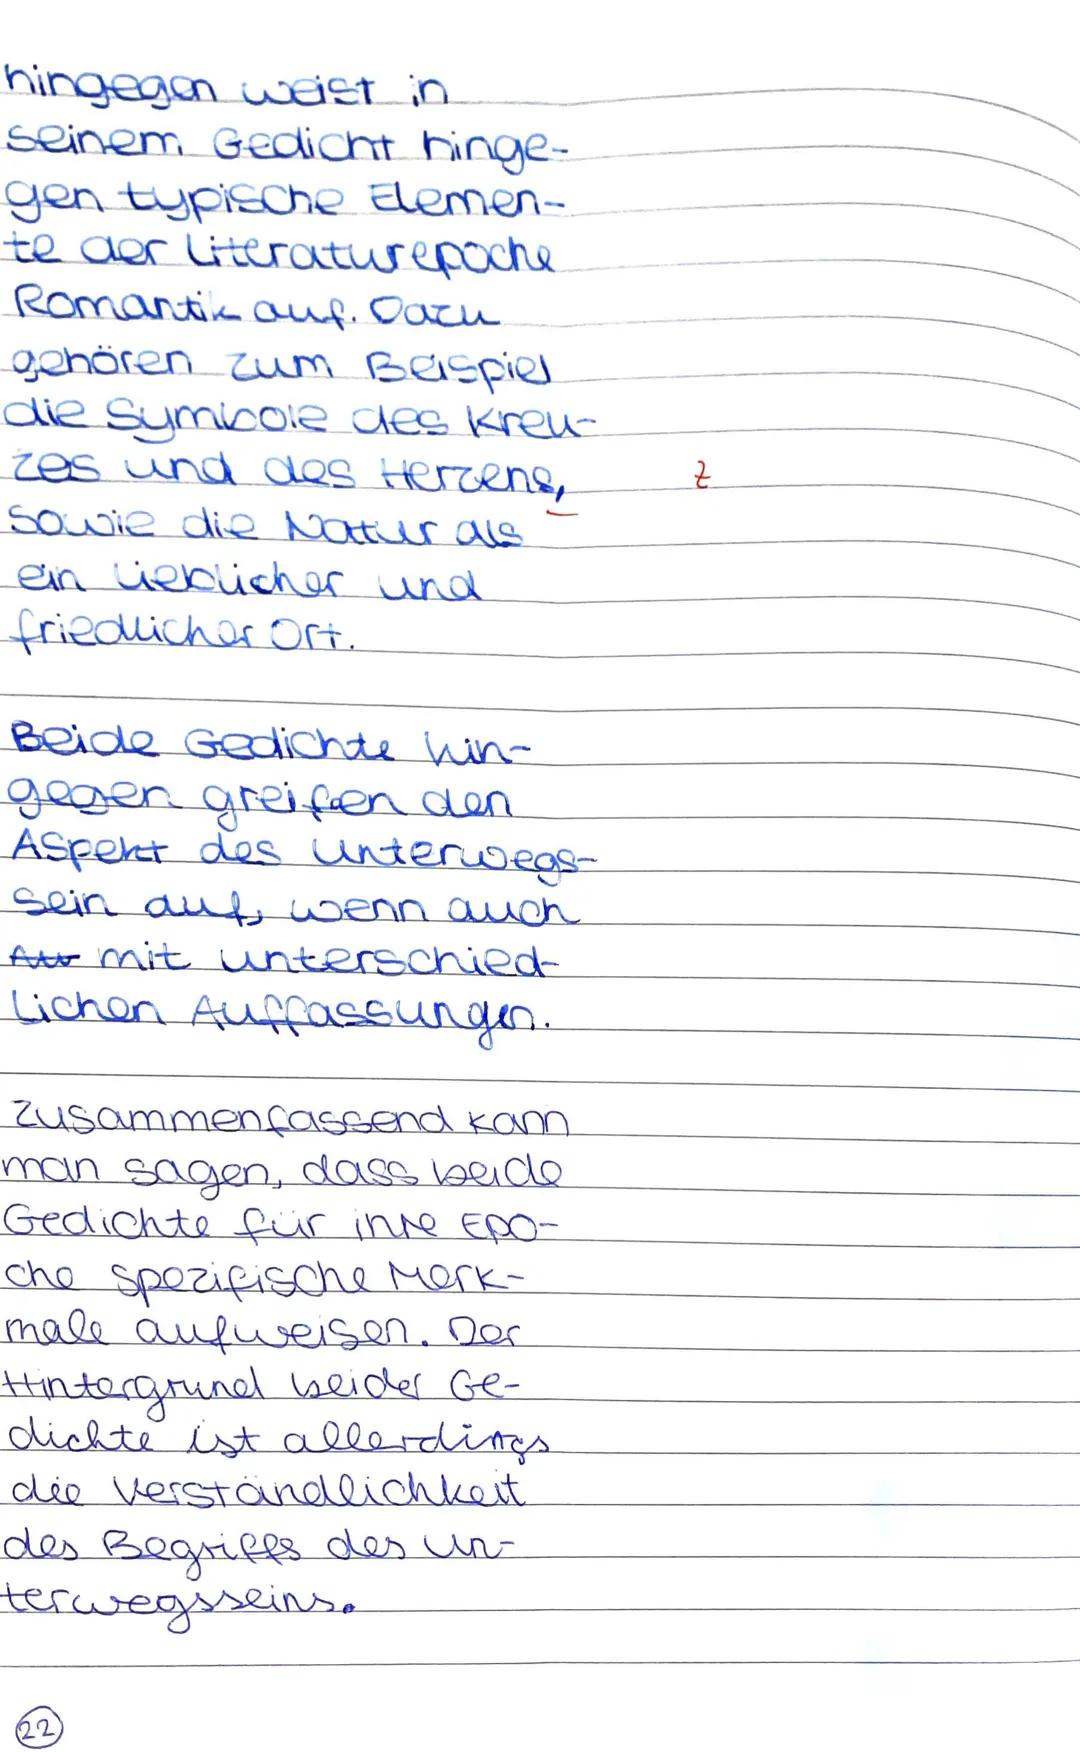 hingegen weist in
seinem Gedicht hinge-
gen typische Elemen-
te der Literaturepoche
Romantik auf. Dazu
gehören zum Beispiel
die Symbole des Kreu-
zes und des Herzens, Z
sowie die Natur als
ein lieblicher und
friedlicher Ort.
Beide Gedichte hin-
gegen greifen den
Aspekt des Unterwegs-
sein auf, wenn auch
mit unterschied-
lichen Auffassungen.
Zusammenfassend kann
man sagen, dass beide
Gedichte für ihre Epo-
che spezifische Merk-
male aufweisen. Der
Hintergrund beider Ge-
dichte ist allerdings
die Verständlichkeit
des Begriffs des Un-
terwegsseins.
22